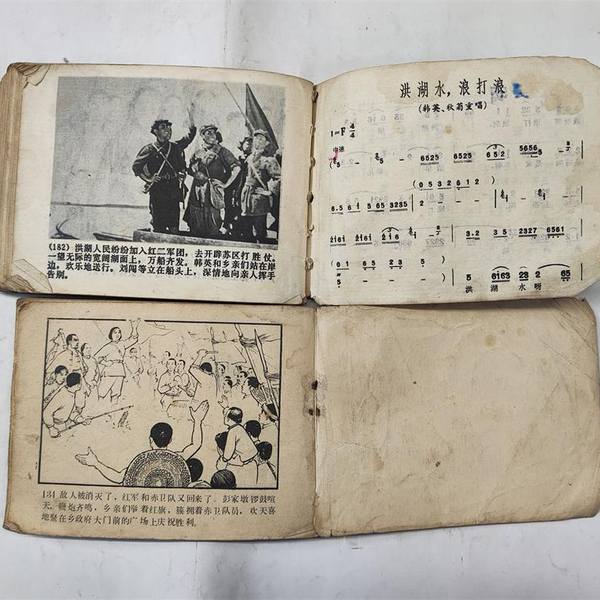 (182) 洪湖人民纷纷加入红二军团，去开辟苏区打胜仗。
一望无际的宽阔湖面上，万船齐发。韩英和乡亲们站在岸
边，欢乐地送行，刘闯等立在船头上，深情地向亲人挥手
告别。
洪湖水，浪打浪
(韩英、秋菊重唱)
1=F 4/4
中速
6525 6525 652 5656
(0 5 3 2 6 1 2)
6.5 6 1 5 65 3235
2161 2161 2161 2327
(0 1 6 5 3 5 2)
5 6163 23 2 65
洪 湖 水 呀
184 敌人被消灭了，红军和赤卫队又回来了。彭家墩锣鼓喧
天，鞭炮齐鸣，乡亲们举着红旗，簇拥着赤卫队员，欢天喜
地聚在乡政府大门前的广场上庆祝胜利。